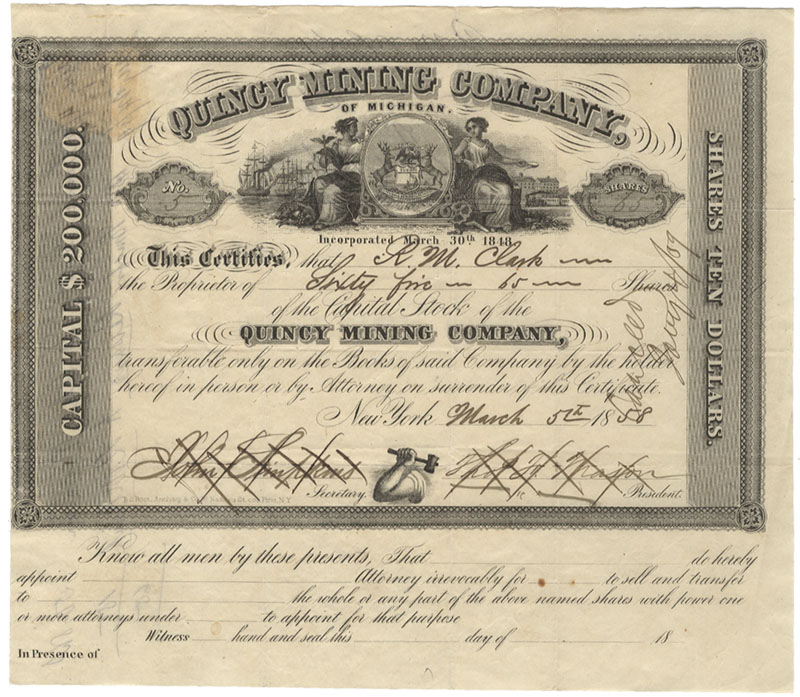 QUINCY MINING COMPANY,
OF MICHIGAN.
No.
5
SHARES
CAPITAL $200,000.
SHARES TEN DOLLARS.
Incorporated March 30th 1848
This Certifies, that K. M. Clark
the Proprietor of Sixty five 65 Shares
of the Capital Stock of the
QUINCY MINING COMPANY,
transferable only on the Books of said Company by the holder
hereof in person or by Attorney on surrender of this Certificate.
New York March 5th 1858
Cancelled
John Simpkins
Secretary.
Thos F. Mason
President.
Know all men by these presents, That do hereby
appoint Attorney irrevocably for to sell and transfer
to the whole or any part of the above named shares with power one
or more attorneys under to appoint for that purpose
Witness hand and seal this day of 18
In Presence of